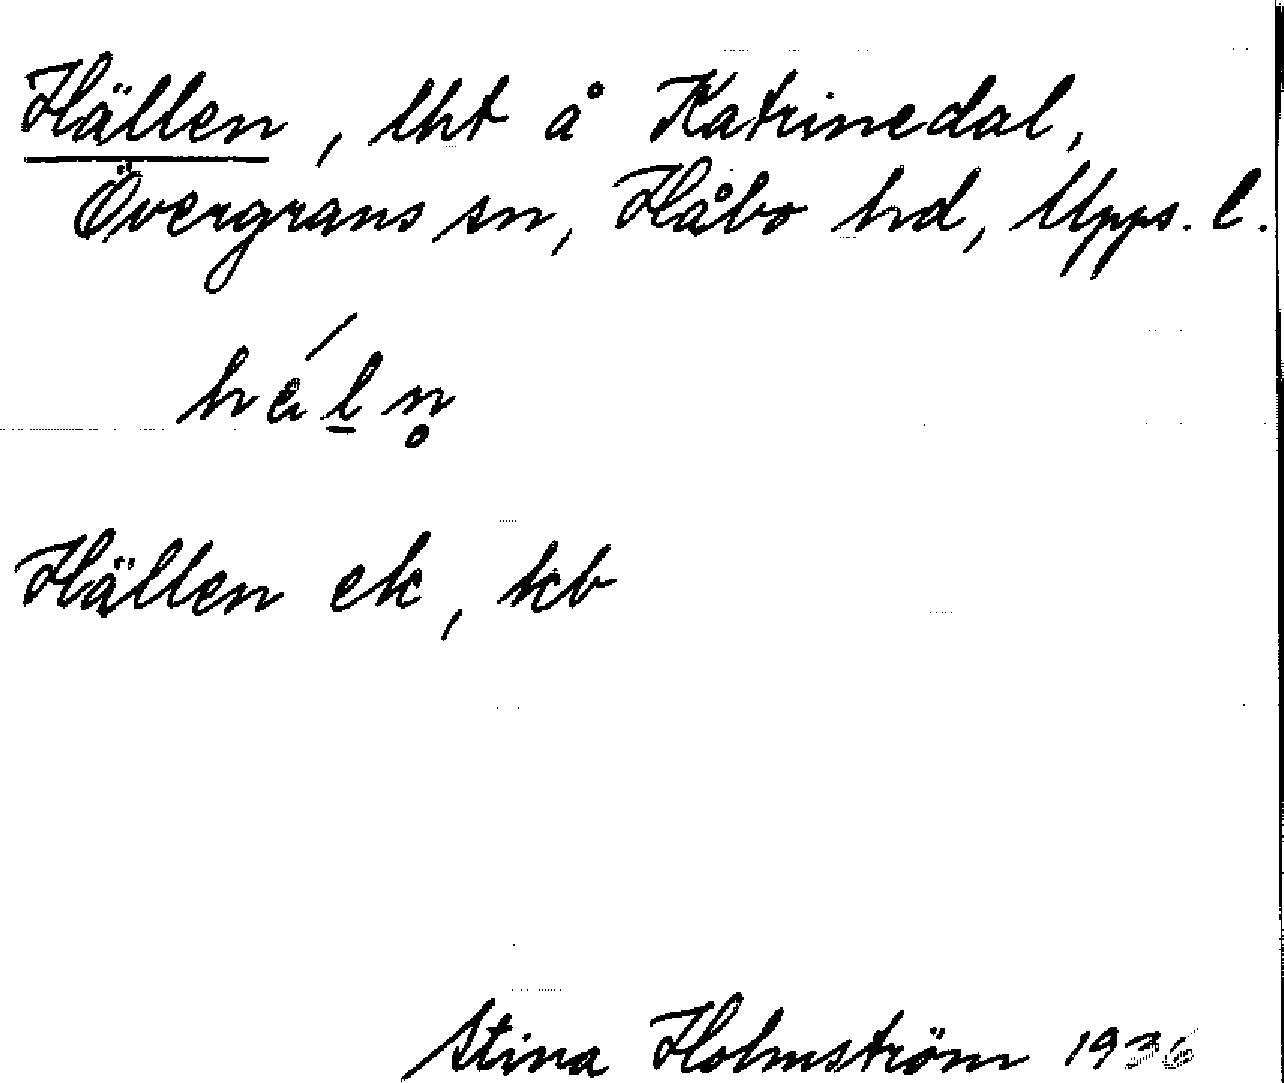 Hällen, lht å Katrinedal,
Övergrans sn, Håbo hd, Upps. l.
Hällen ek, kb
Stina Holmström 1936